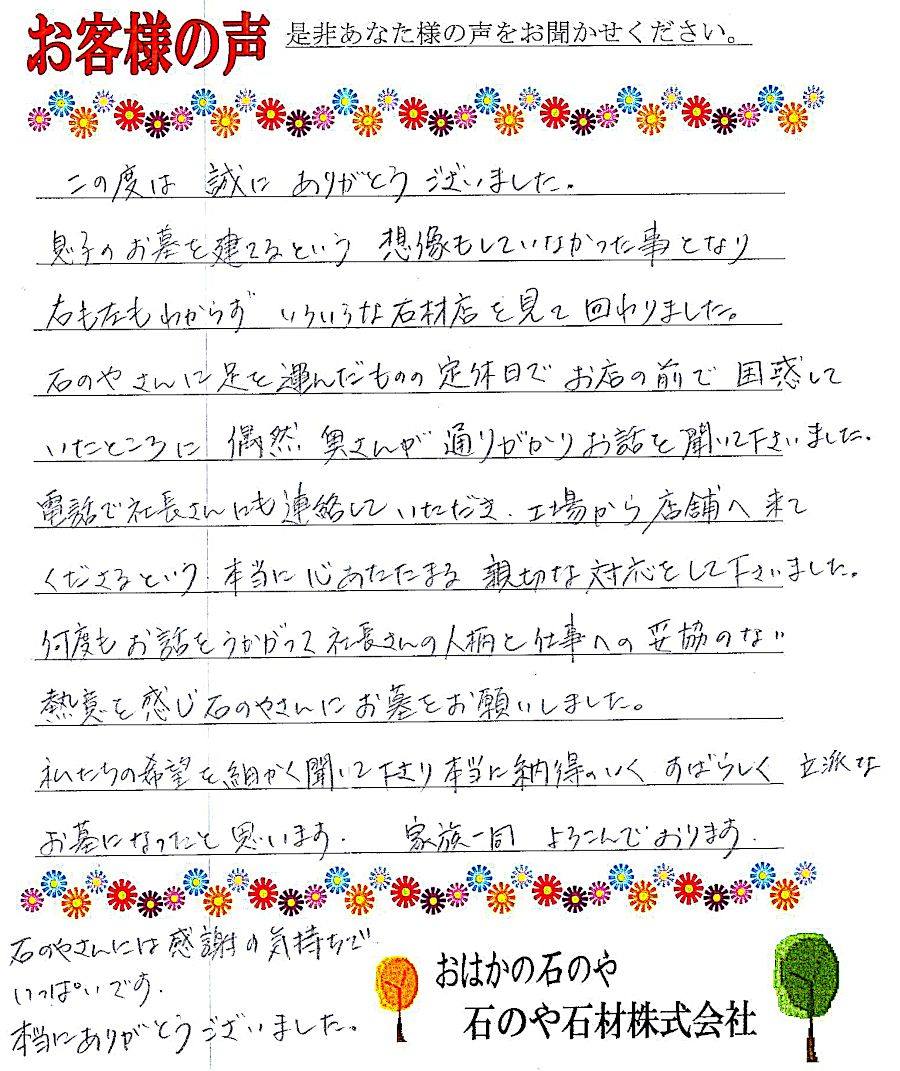 お客様の声 是非あなた様の声をお聞かせください。
この度は 誠に ありがとう ございました。
息子のお墓を建てるという 想像もしていなかった事となり
右も左もわからず いろいろな石材店を見て回わりました。
石のやさんに足を運んだものの定休日で お店の前で 困惑して
いたところに 偶然 奥さんが 通りがかりお話を聞いて下さいました。
電話で社長さんにも連絡して いただき、工場から店舗へ来て
くださるという 本当に心あたたまる 親切な対応をして下さいました。
何度もお話をうかがって社長さんの人柄と仕事への妥協のない
熱意を感じ石のやさんにお墓をお願いしました。
私たちの希望を細かく聞いて下さり本当に納得のいく すばらしく 立派な
お墓になったと思います. 家族一同 よろこんでおります.
石のやさんには感謝の気持ちで
いっぱいです.
本当にありがとうございました。
おはかの石のや
石のや石材株式会社